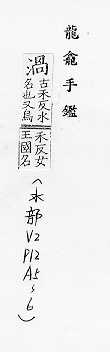 龍龕手鑑
渦
古禾反水
名也又烏
禾反女
王國名
(水部V2P12A5~6)